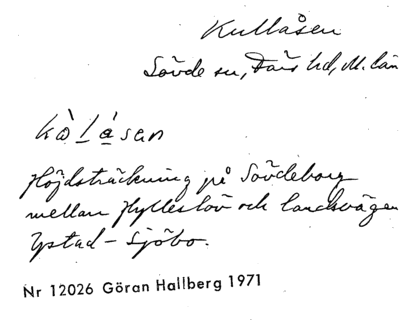 Kullåsen
Sövde sn, Färs hd, M. län
kòlásen
Höjdsträckning på Sövdeborg
mellan Hylleslöv och landsvägen
Ystad - Sjöbo.
Nr 12026 Göran Hallberg 1971